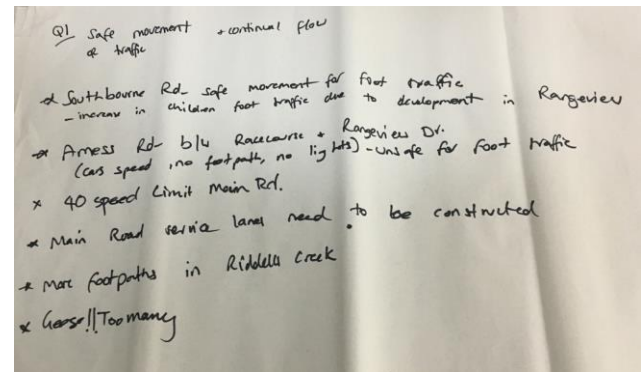 Q1 Safe movement + continual flow
of traffic
* Southbourne Rd - safe movement for foot traffic
- increase in children foot traffic due to development in Rangeview
* Amess Rd b/w Racecourse + Rangeview Dr.
(cars speed, no footpath, no lights) - unsafe for foot traffic
* 40 speed limit Main Rd.
* Main Road service lanes need to be constructed
* More footpaths in Riddells Creek
* Geese!! Too many